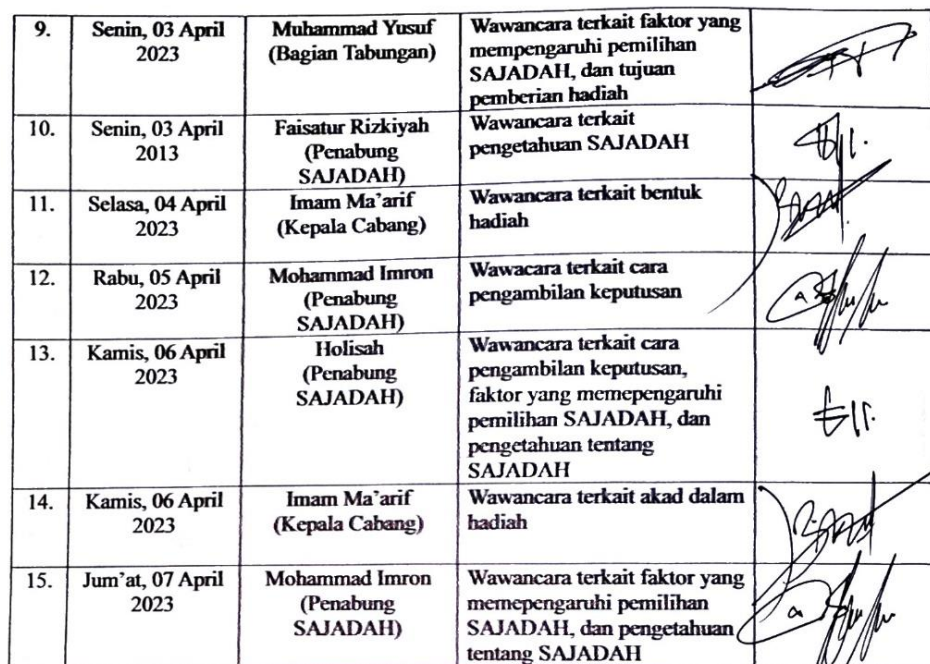 9.
Senin, 03 April
2023
Muhammad Yusuf
(Bagian Tabungan)
Wawancara terkait faktor yang
mempengaruhi pemilihan
SAJADAH, dan tujuan
pemberian hadiah
10.
Senin, 03 April
2013
Faisatur Rizkiyah
(Penabung
SAJADAH)
Wawancara terkait
pengetahuan SAJADAH
11.
Selasa, 04 April
2023
Imam Ma'arif
(Kepala Cabang)
Wawancara terkait bentuk
hadiah
12.
Rabu, 05 April
2023
Mohammad Imron
(Penabung
SAJADAH)
Wawacara terkait cara
pengambilan keputusan
13.
Kamis, 06 April
2023
Holisah
(Penabung
SAJADAH)
Wawancara terkait cara
pengambilan keputusan,
faktor yang memepengaruhi
pemilihan SAJADAH, dan
pengetahuan tentang
SAJADAH
14.
Kamis, 06 April
2023
Imam Ma'arif
(Kepala Cabang)
Wawancara terkait akad dalam
hadiah
15.
Jum'at, 07 April
2023
Mohammad Imron
(Penabung
SAJADAH)
Wawancara terkait faktor yang
memepengaruhi pemilihan
SAJADAH, dan pengetahuan
tentang SAJADAH